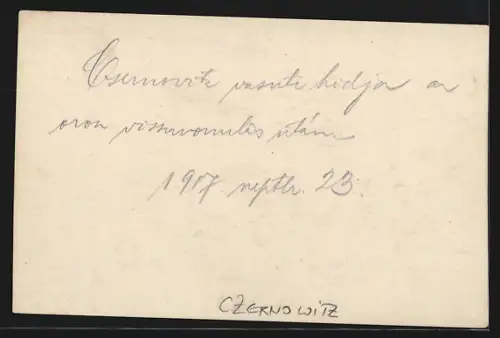 Csernovitz vasuti hidja az
orosz visszavonulás után
1917. septbr. 23.
CZERNOWITZ